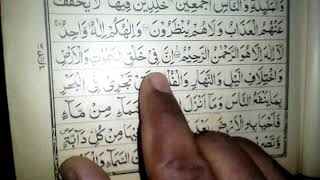 وَالْمَلٰٓئِكَةِ وَالنَّاسِ اَجْمَعِيْنَ خٰلِدِيْنَ فِيْهَا لَا يُخَفَّفُ
عَنْهُمُ الْعَذَابُ وَلَاهُمْ يُنْظَرُوْنَ وَاِلٰهُكُمْ اِلٰهٌ وَّاحِدٌ
لَآ اِلٰهَ اِلَّا هُوَ الرَّحْمٰنُ الرَّحِيْمُ اِنَّ فِيْ خَلْقِ السَّمٰوٰتِ وَالْاَرْضِ
وَاخْتِلَافِ الَّيْلِ وَالنَّهَارِ تَجْرِيْ فِي الْبَحْرِ
بِمَا يَنْفَعُ النَّاسَ وَمَآ اَنْزَلَ مِنْ مَّآءٍ
فَاَحْيَا بِهِ الْاَرْضَ مِنْ كُلِّ دَآبَّةٍ
السَّمَآءِ وَالْ